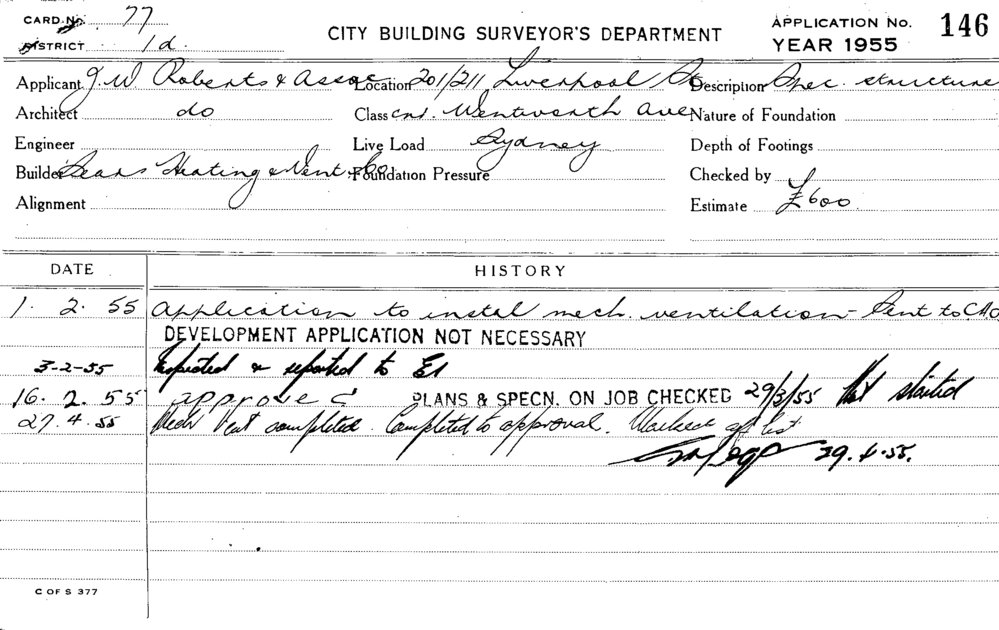 CARD No. 77
DISTRICT 1d.
CITY BUILDING SURVEYOR'S DEPARTMENT
APPLICATION No. 146
YEAR 1955
Applicant J.W Roberts & Assoc Location 201/211 Liverpool St Description Spec. structure
Architect do Class cnr. Wentworth Ave Nature of Foundation
Engineer Live Load Sydney Depth of Footings
Builder Sears Heating & Vent Co Foundation Pressure Checked by
Alignment Estimate £600
DATE HISTORY
1. 2. 55 Application to instal mech. ventilation - Sent to
DEVELOPMENT APPLICATION NOT NECESSARY
3-2-55 Inspected & reported to
16. 2. 55 approved PLANS & SPECN. ON JOB CHECKED 29/3/55 Not started
27. 4. 55 Mech Vent completed. Completed to approval. Marked off list
29.4.55.
C OF S 377